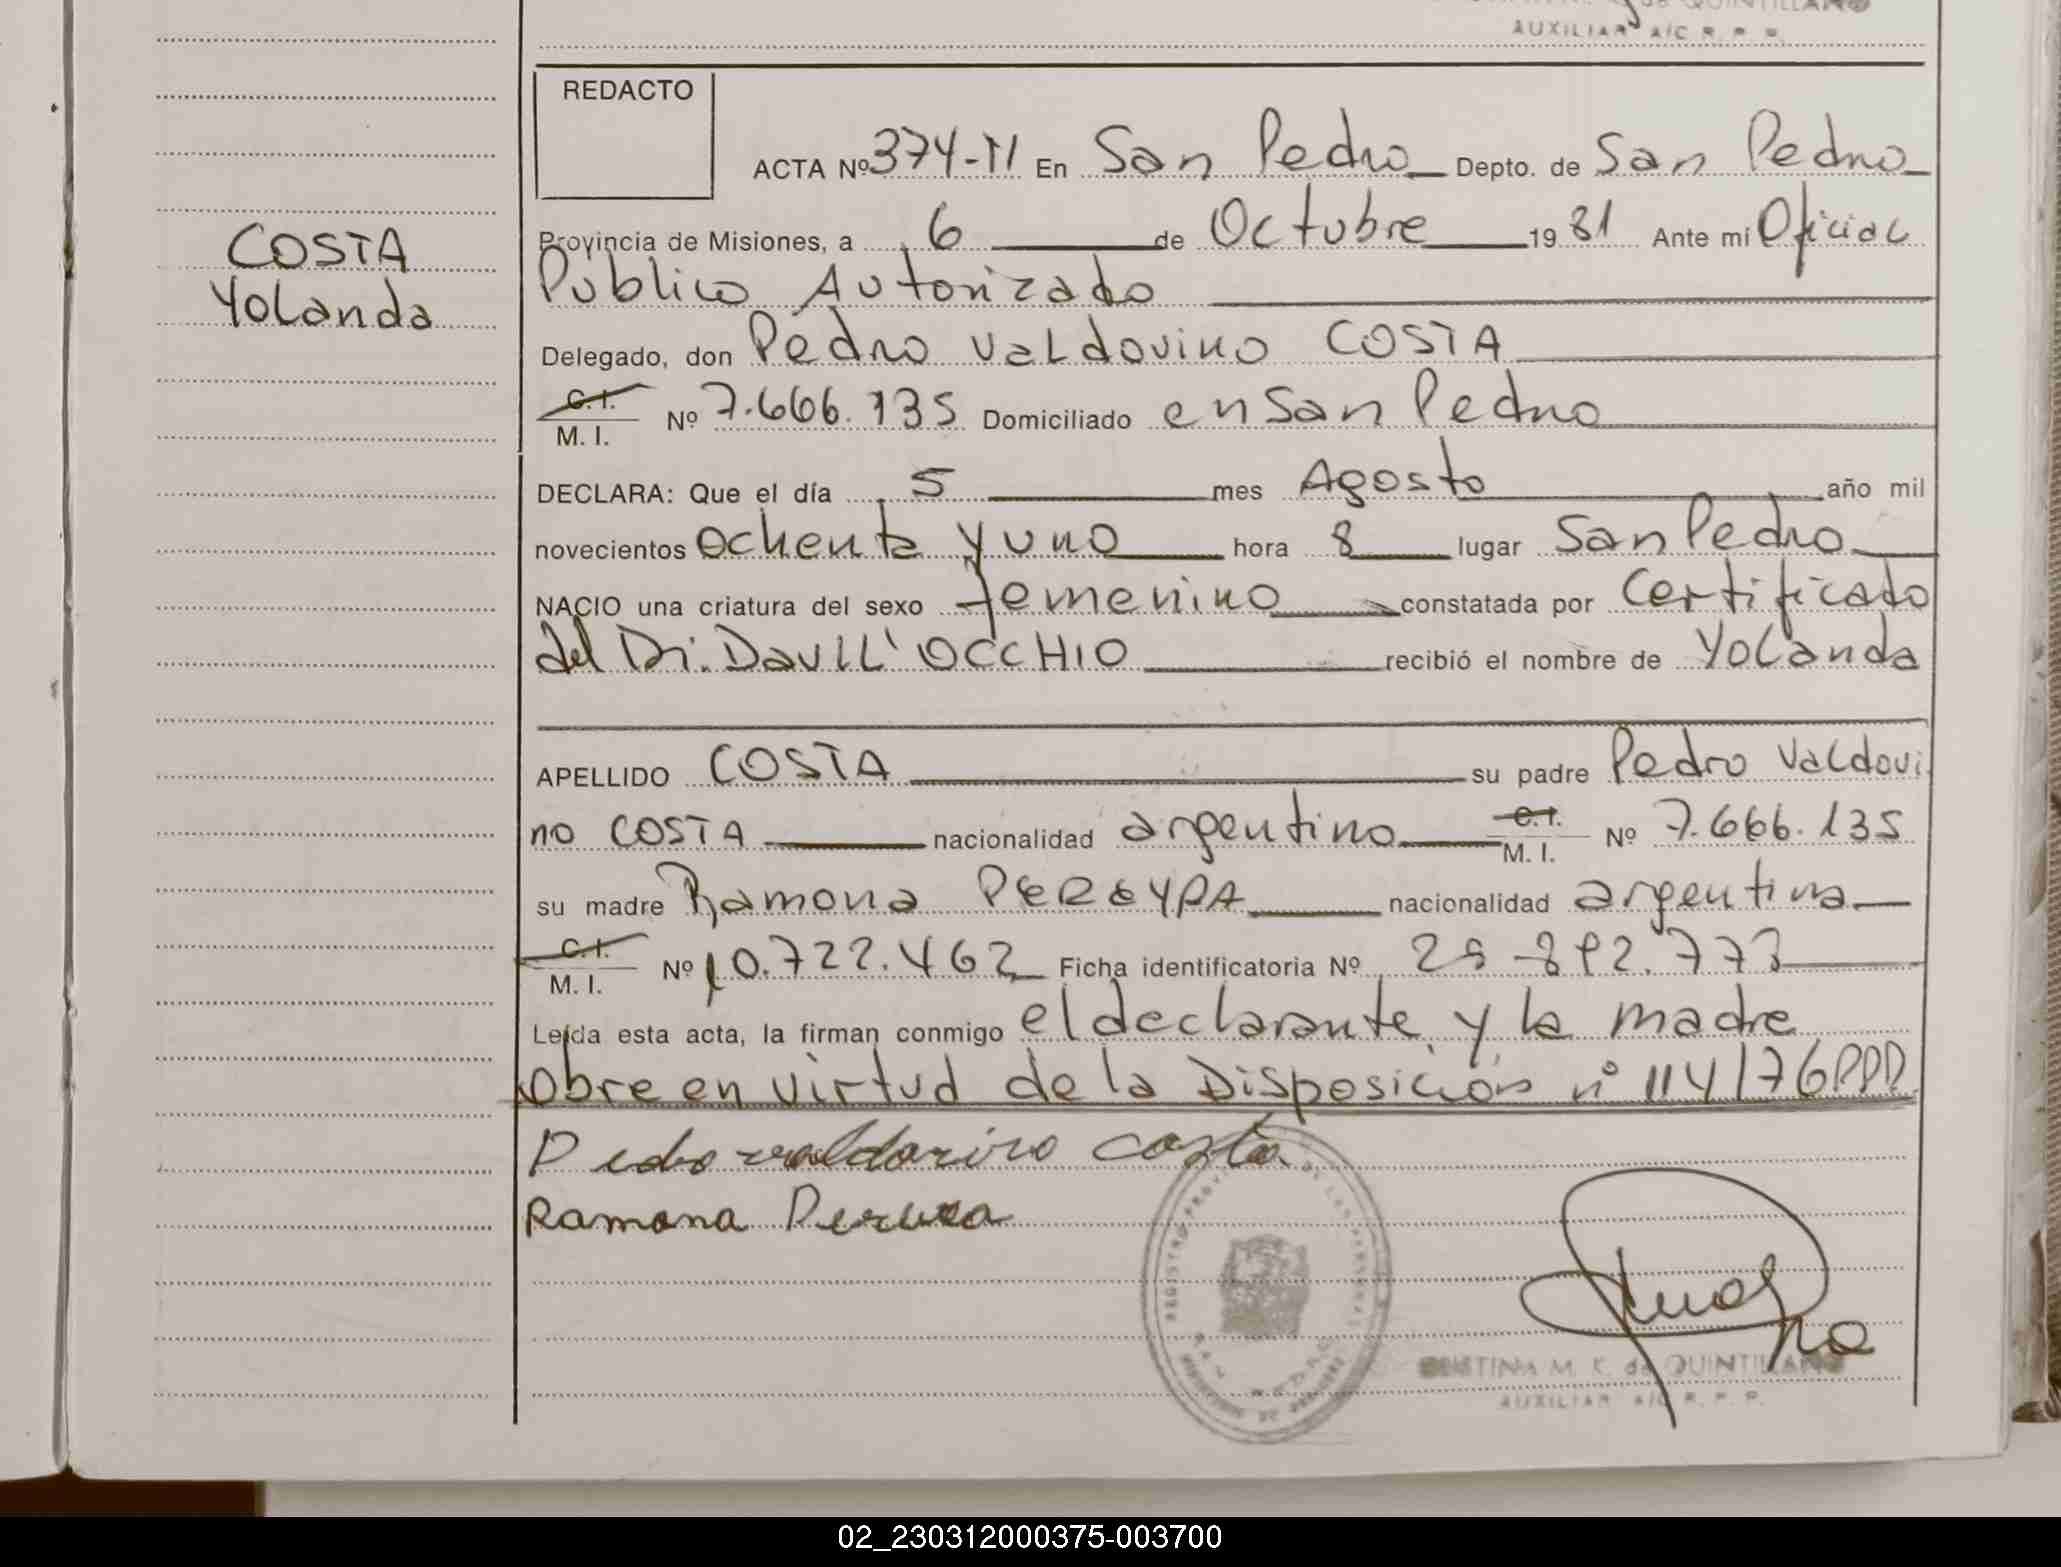 de QUINTILLANO
AUXILIAR A/C R. P. P.
REDACTO
ACTA Nº 374-TI En San Pedro Depto. de San Pedro
COSTA
Yolanda
Provincia de Misiones, a 6 de Octubre 1981 Ante mi Oficial
Publico Autorizado
Delegado, don Pedro Valdovino COSTA
C. I. M. I. Nº 7.666.135 Domiciliado en San Pedro
DECLARA: Que el día 5 mes Agosto año mil
novecientos ochenta y uno hora 8 lugar San Pedro
NACIO una criatura del sexo femenino constatada por Certificado
del Dr. Dall'OCCHIO recibió el nombre de Yolanda
APELLIDO COSTA su padre Pedro Valdovi
no COSTA nacionalidad argentino C. I. M. I. Nº 7.666.135
su madre Ramona PEREYRA nacionalidad argentina
C. I. M. I. Nº 10.722.462 Ficha identificatoria Nº
Leída esta acta, la firman conmigo el declarante y la madre
obre en virtud de la Disposición nº 114/76
Pedro valdovino costa
Ramona
CRISTINA M. K. de QUINTILLANO
AUXILIAR A/C R. P. P.
02_230312000375-003700